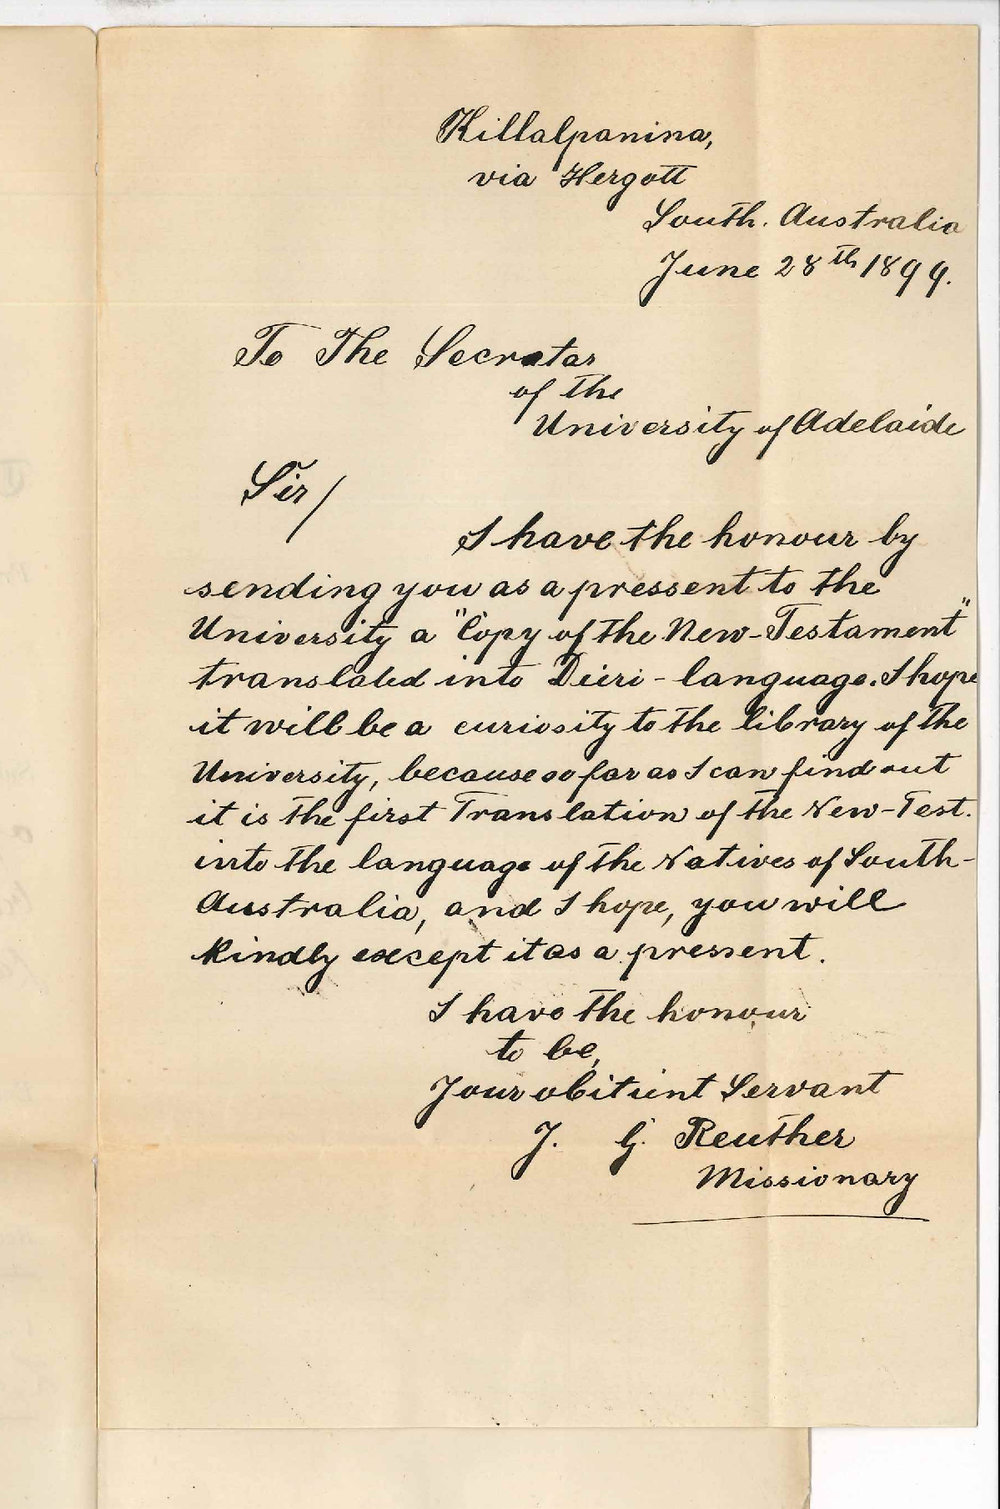 Killalpanina,
via Hergott
South. Australia
June 28th 1899.
To The Secratar
of the
University of Adelaide
Sir/
I have the honour by
sending you as a pressent to the
University a "Copy of the New-Testament"
translated into Dieri-language. I hope
it will be a curiosity to the library of the
University, because so far as I can find out
it is the first Translation of the New-Test.
into the language of the Natives of South-
Australia, and I hope, you will
kindly except it as a pressent.
I have the honour
to be,
Your obitient Servant
J. G. Reuther
Missionary